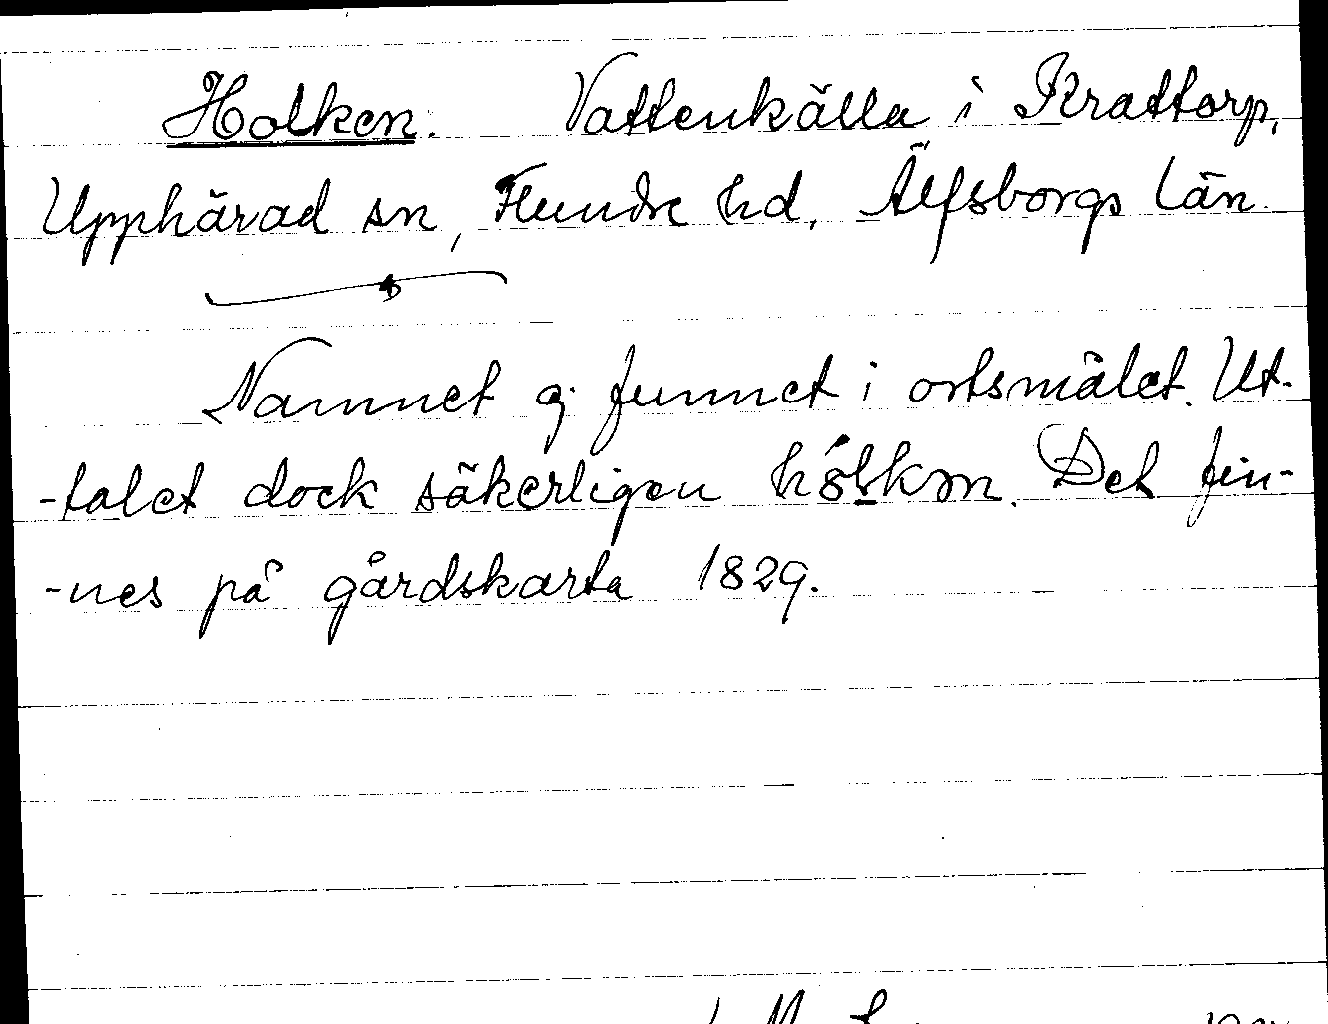 Holken. Vattenkälla i Krattorp,
Upphärad sn, Flundre hd, Älfsborgs län.
Namnet ej funnet i ortsmålet. Ut-
-talet dock säkerligen Det fin-
-nes på gårdskarta 1829.